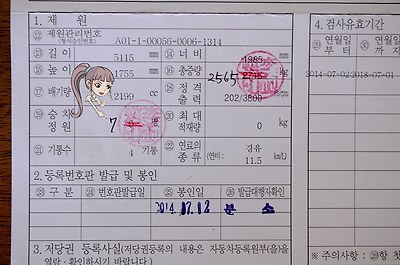 1. 제 원
4. 검사유효기간
⑫ 제원관리번호 (형식승인번호) A01-1-00056-0006-1314
⑬ 길이 5115 mm ⑭ 너비 1985 mm
⑮ 높이 1755 mm ⑯ 총중량 2565 kg
⑰ 배기량 2199 cc ⑱ 정격출력 202/3800
⑲ 승차정원 7 ⑳ 최대적재량 0 kg
㉑ 기통수 4 기통 ㉒ 연료의 종류 경유 (연비: 11.5 km/L)
연월일부터 연월일까지
2014-07-02 2018-07-01
2. 등록번호판 발급 및 봉인
㉓ 구 분 ㉔ 번호판발급일 ㉕ 봉인일 ㉖ 발급대행자확인
2014.07.18 분 소
3. 저당권 등록사실(저당권등록의 내용은 자동차등록원부(을)을
열람·확인하시기 바랍니다.)
※ 주의사항 : ㉙항 첫